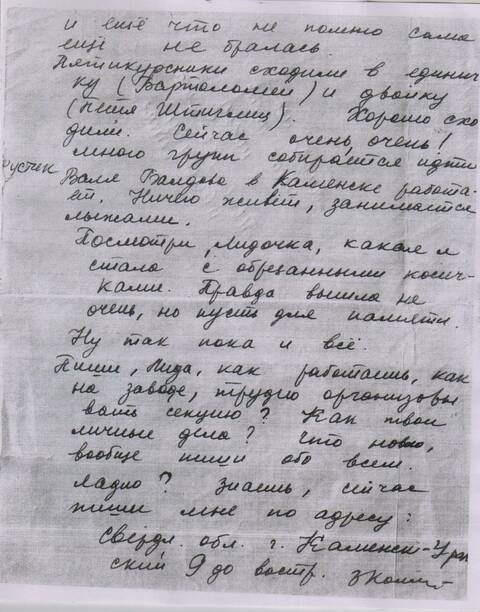 и ещё что не помню сама
ещё не бралась.
Пятикурсники сходили в единич
ку (Бартоломей) и двойку
(петя Штиглиц). Хорошо схо
дили. Сейчас очень, очень!
много групп собирается идти
Валя Балдова в Каменске работа-
ет. Ничего живёт, занимается
лыжами.
Посмотри, Лидочка, какая я
стала с обрезанными косич-
ками. Правда вышла не
очень, но пусть для памяти.
Ну так пока и всё.
Пиши, Лида, как работаешь, как
на заводе, трудно организовы
вать секцию? Как твои
личные дела? Что ново,
вообще пиши обо всем.
Ладно? Знаешь, сейчас
пиши мне по адресу:
Свердл. обл. г. Каменск-Урал
ский 9 до востр.